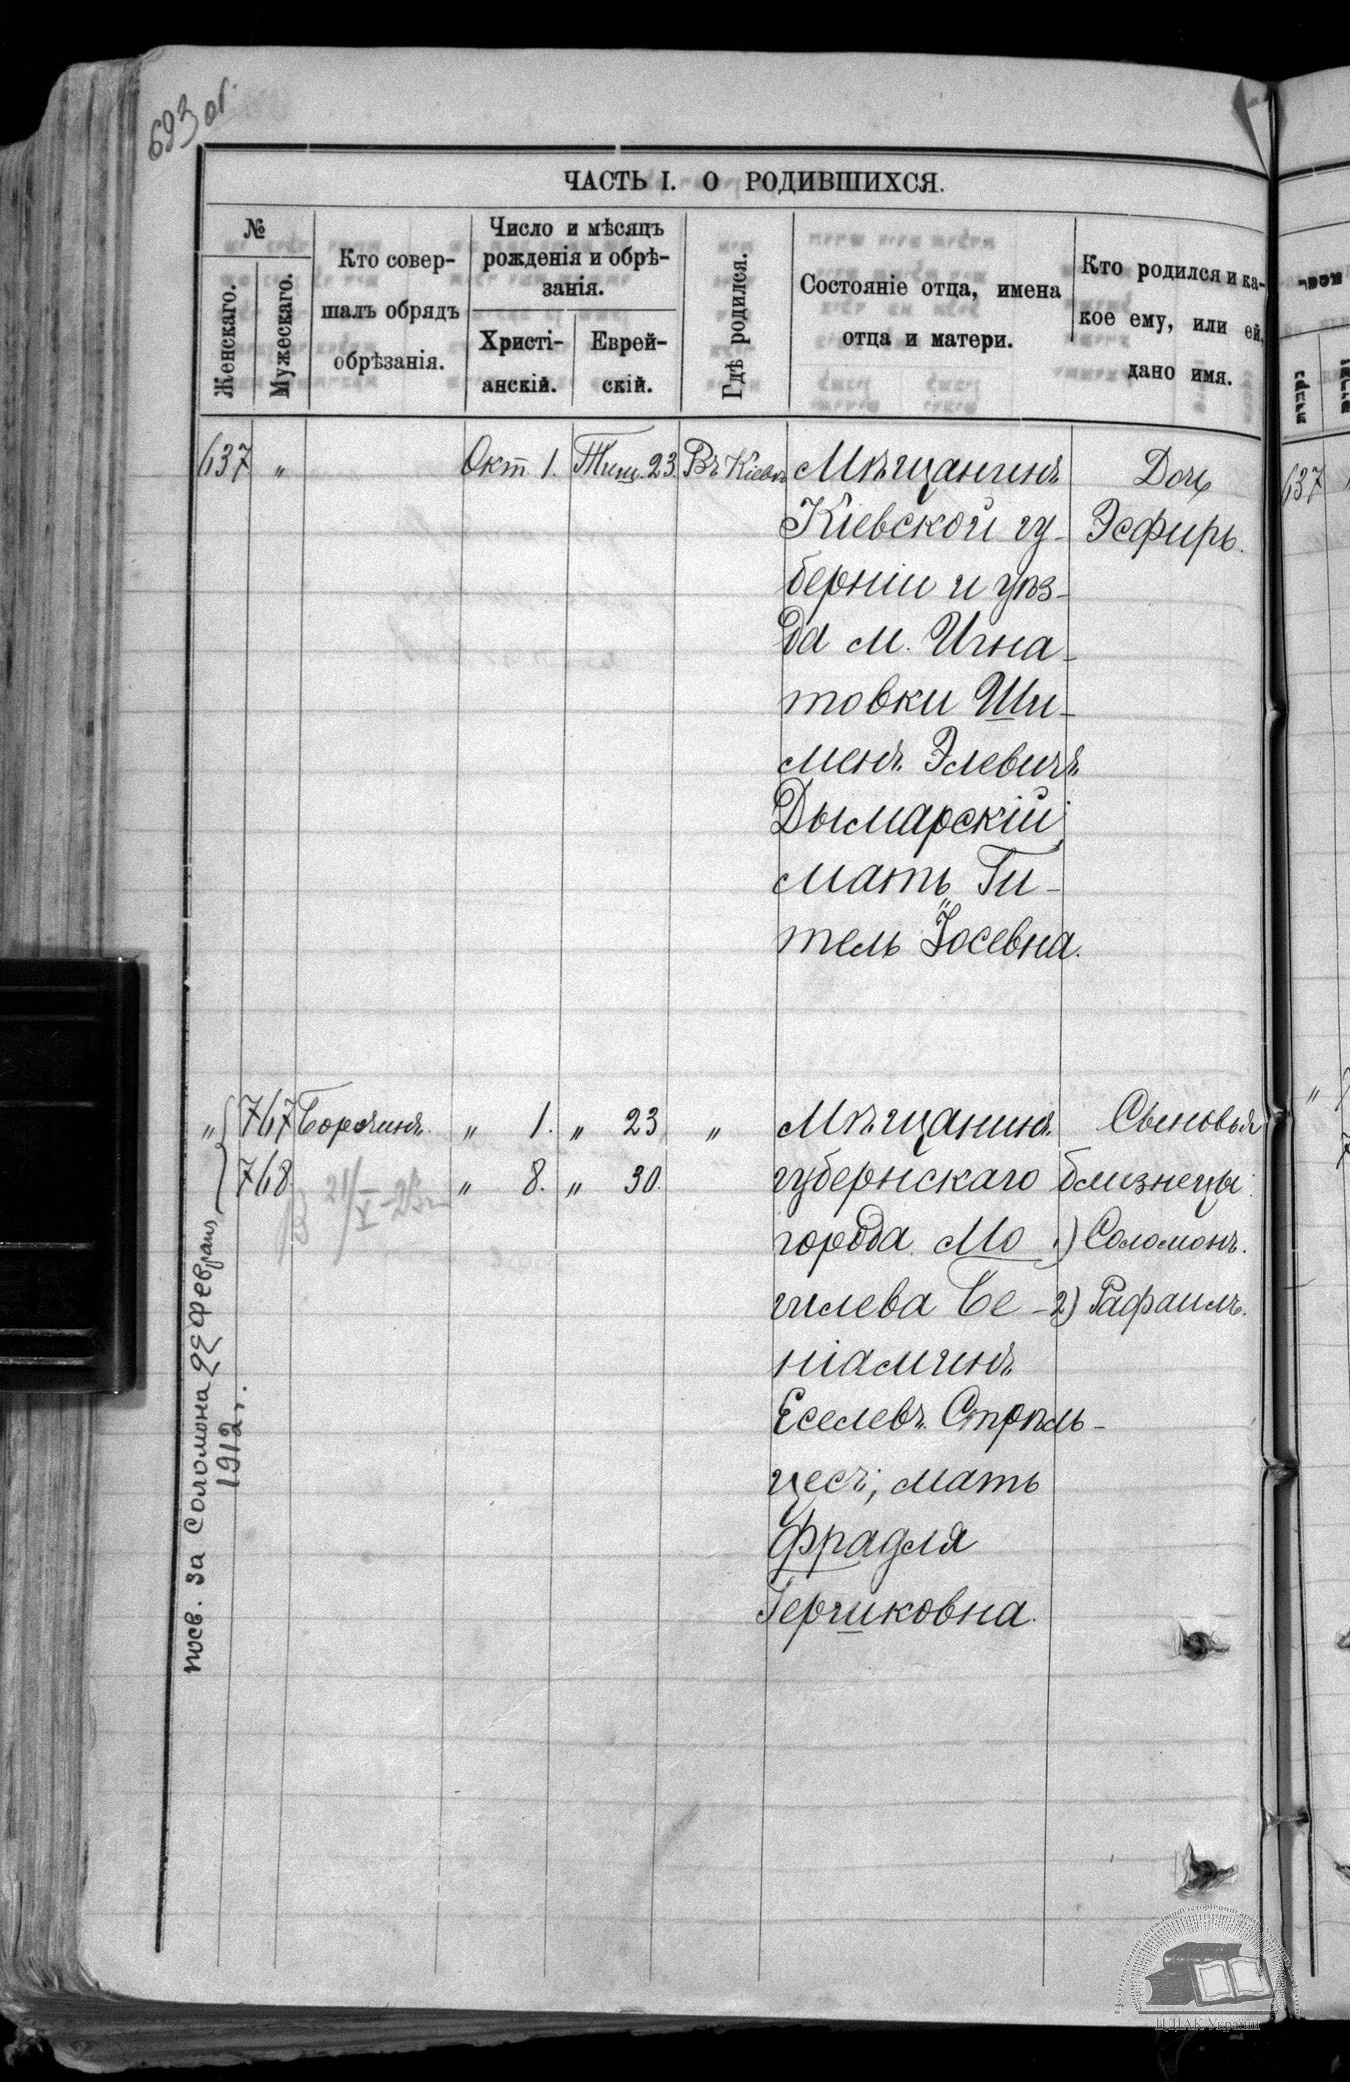 693 об.
ЧАСТЬ I. О РОДИВШИХСЯ.
№
Женскаго.
Мужескаго.
Кто совер-
шалъ обрядъ
обрѣзанія.
Число и мѣсяцъ
рожденія и обрѣ-
занія.
Христі-
анскій.
Еврей-
скій.
Гдѣ родился.
Состояніе отца, имена
отца и матери.
Кто родился и ка-
кое ему, или ей,
дано имя.
637 " Окт. 1. Тиш. 23. Въ Кіевѣ
Мѣщанинъ
Кіевской гу-
берніи и уѣз-
да м. Игна-
товки Ши-
менъ Элевичъ
Дымарскій;
мать Ги-
тель Іосевна.
Дочь
Эсфирь.
" 767 " 1. " 23 "
768 " 8. " 30.
Мѣщанинъ
губернскаго
города Мо
гилева Бе-
ніаминъ
Еселевъ Стрѣль-
цесъ; мать
Фрадля
Гершковна.
Сыновья
близнецы:
1) Соломонъ.
2) Рафаилъ.
посв. за Соломона 22 февраля
1912 г.
637
ЦДІАК України